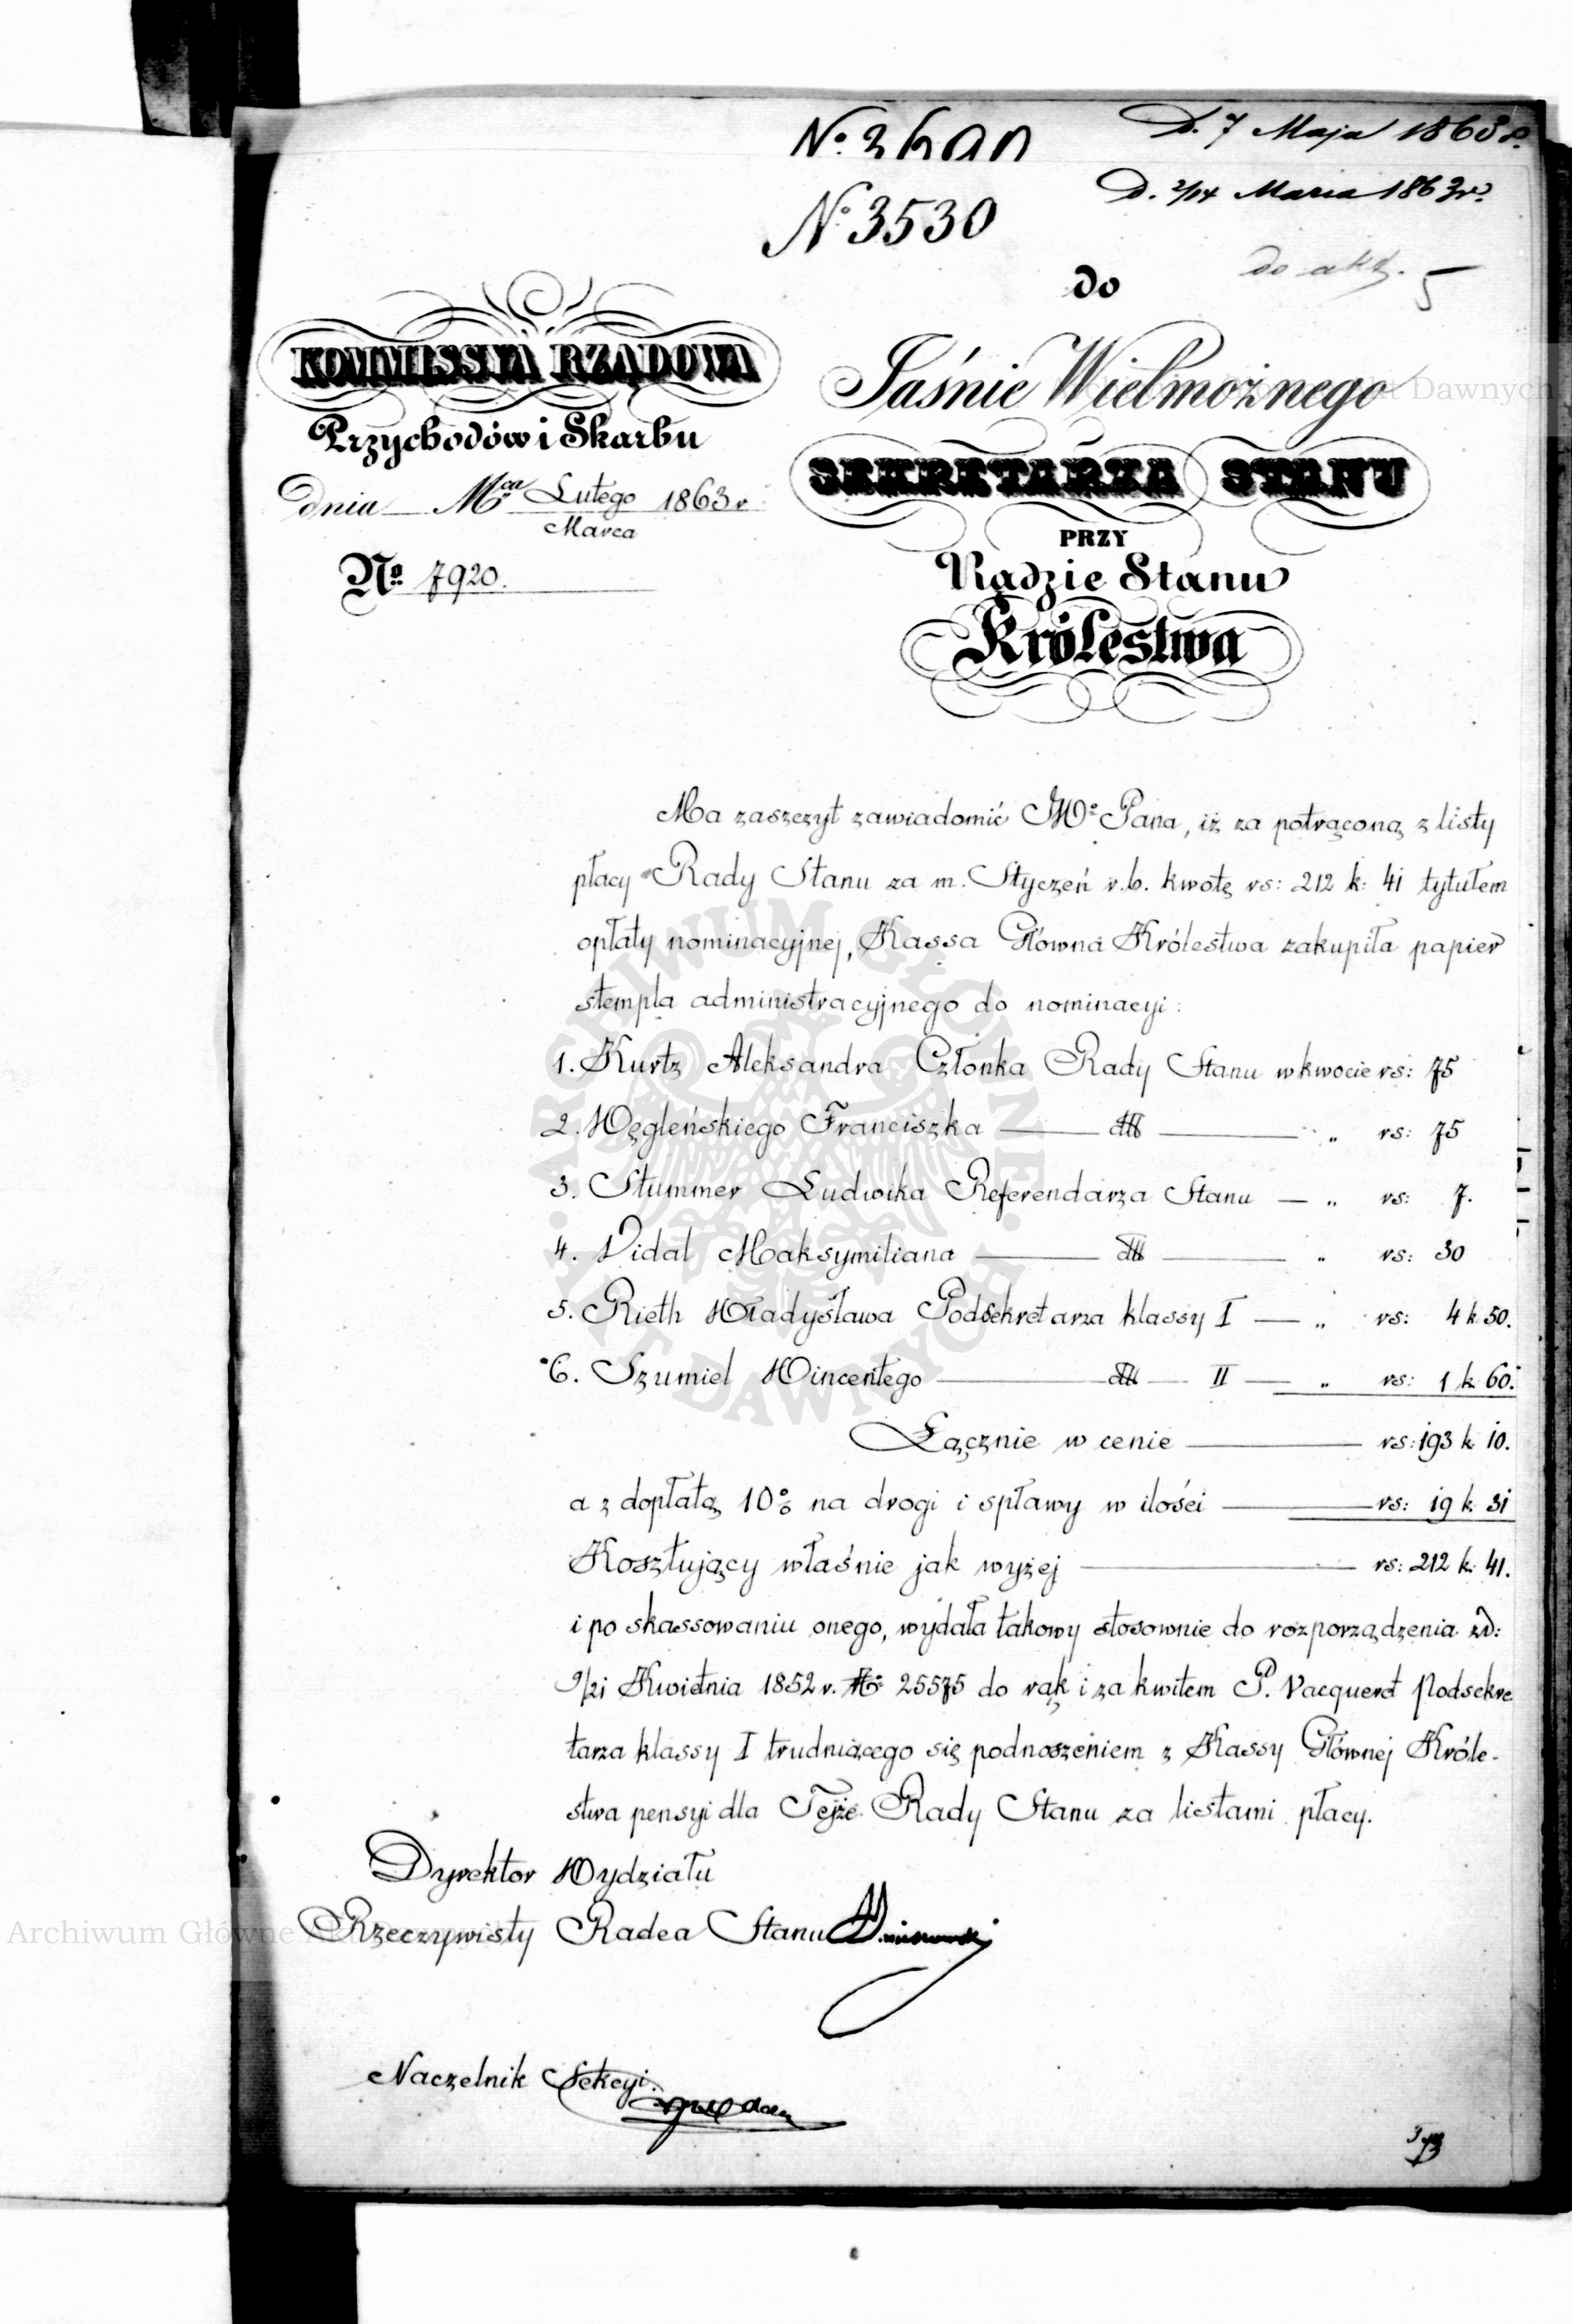 D. 7 Maja 1863 r.
D. 2/14 Marca 1863 r.
N° 3530
do akt. 5
do
KOMMISSYA RZĄDOWA
Przychodów i Skarbu
dnia Mca Lutego 1863 r
Marca
No 7920.
Jaśnie Wielmożnego
SEKRETARZA STANU
PRZY
Radzie Stanu
Królestwa
Ma zaszczyt zawiadomić JWo Pana, iż za potrąconą z listy
płacy Rady Stanu za m. Styczeń r.b. kwotę rs: 212 k: 41 tytułem
opłaty nominacyjnej, Kassa Główna Królestwa zakupiła papier
stempla administracyjnego do nominacyi:
1. Kurtz Aleksandra Członka Rady Stanu w kwocie rs: 75
2. Węgleńskiego Franciszka — dtt — „ rs: 75
3. Stummer Ludwika Referendarza Stanu — „ rs: 7.
4. Vidal Maksymiliana — dtt — „ rs: 30
5. Rieth Władysława Podsekretarza klassy I — „ rs: 4 k. 50.
6. Szumiel Wincentego — dtt — II — „ rs: 1 k. 60.
Łącznie w cenie — rs: 193 k. 10.
a z dopłatą 10% na drogi i spławy w ilości — rs: 19 k. 31
Kosztujący właśnie jak wyżej — rs: 212 k. 41.
i po skassowaniu onego, wydała takowy stosownie do rozporządzenia zd:
9/21 Kwietnia 1852 r. No 25575 do rąk i za kwitem P. Vacqueret Podsekre
tarza klassy I trudniącego się podnoszeniem z Kassy Głównej Króle-
stwa pensyi dla Tejże Rady Stanu za listami płacy.
Dyrektor Wydziału
Rzeczywisty Radca Stanu
Naczelnik Sekcyi
ARCHIWUM GŁÓWNE AKT DAWNYCH
Archiwum Główne Akt Dawnych
Akt Dawnych